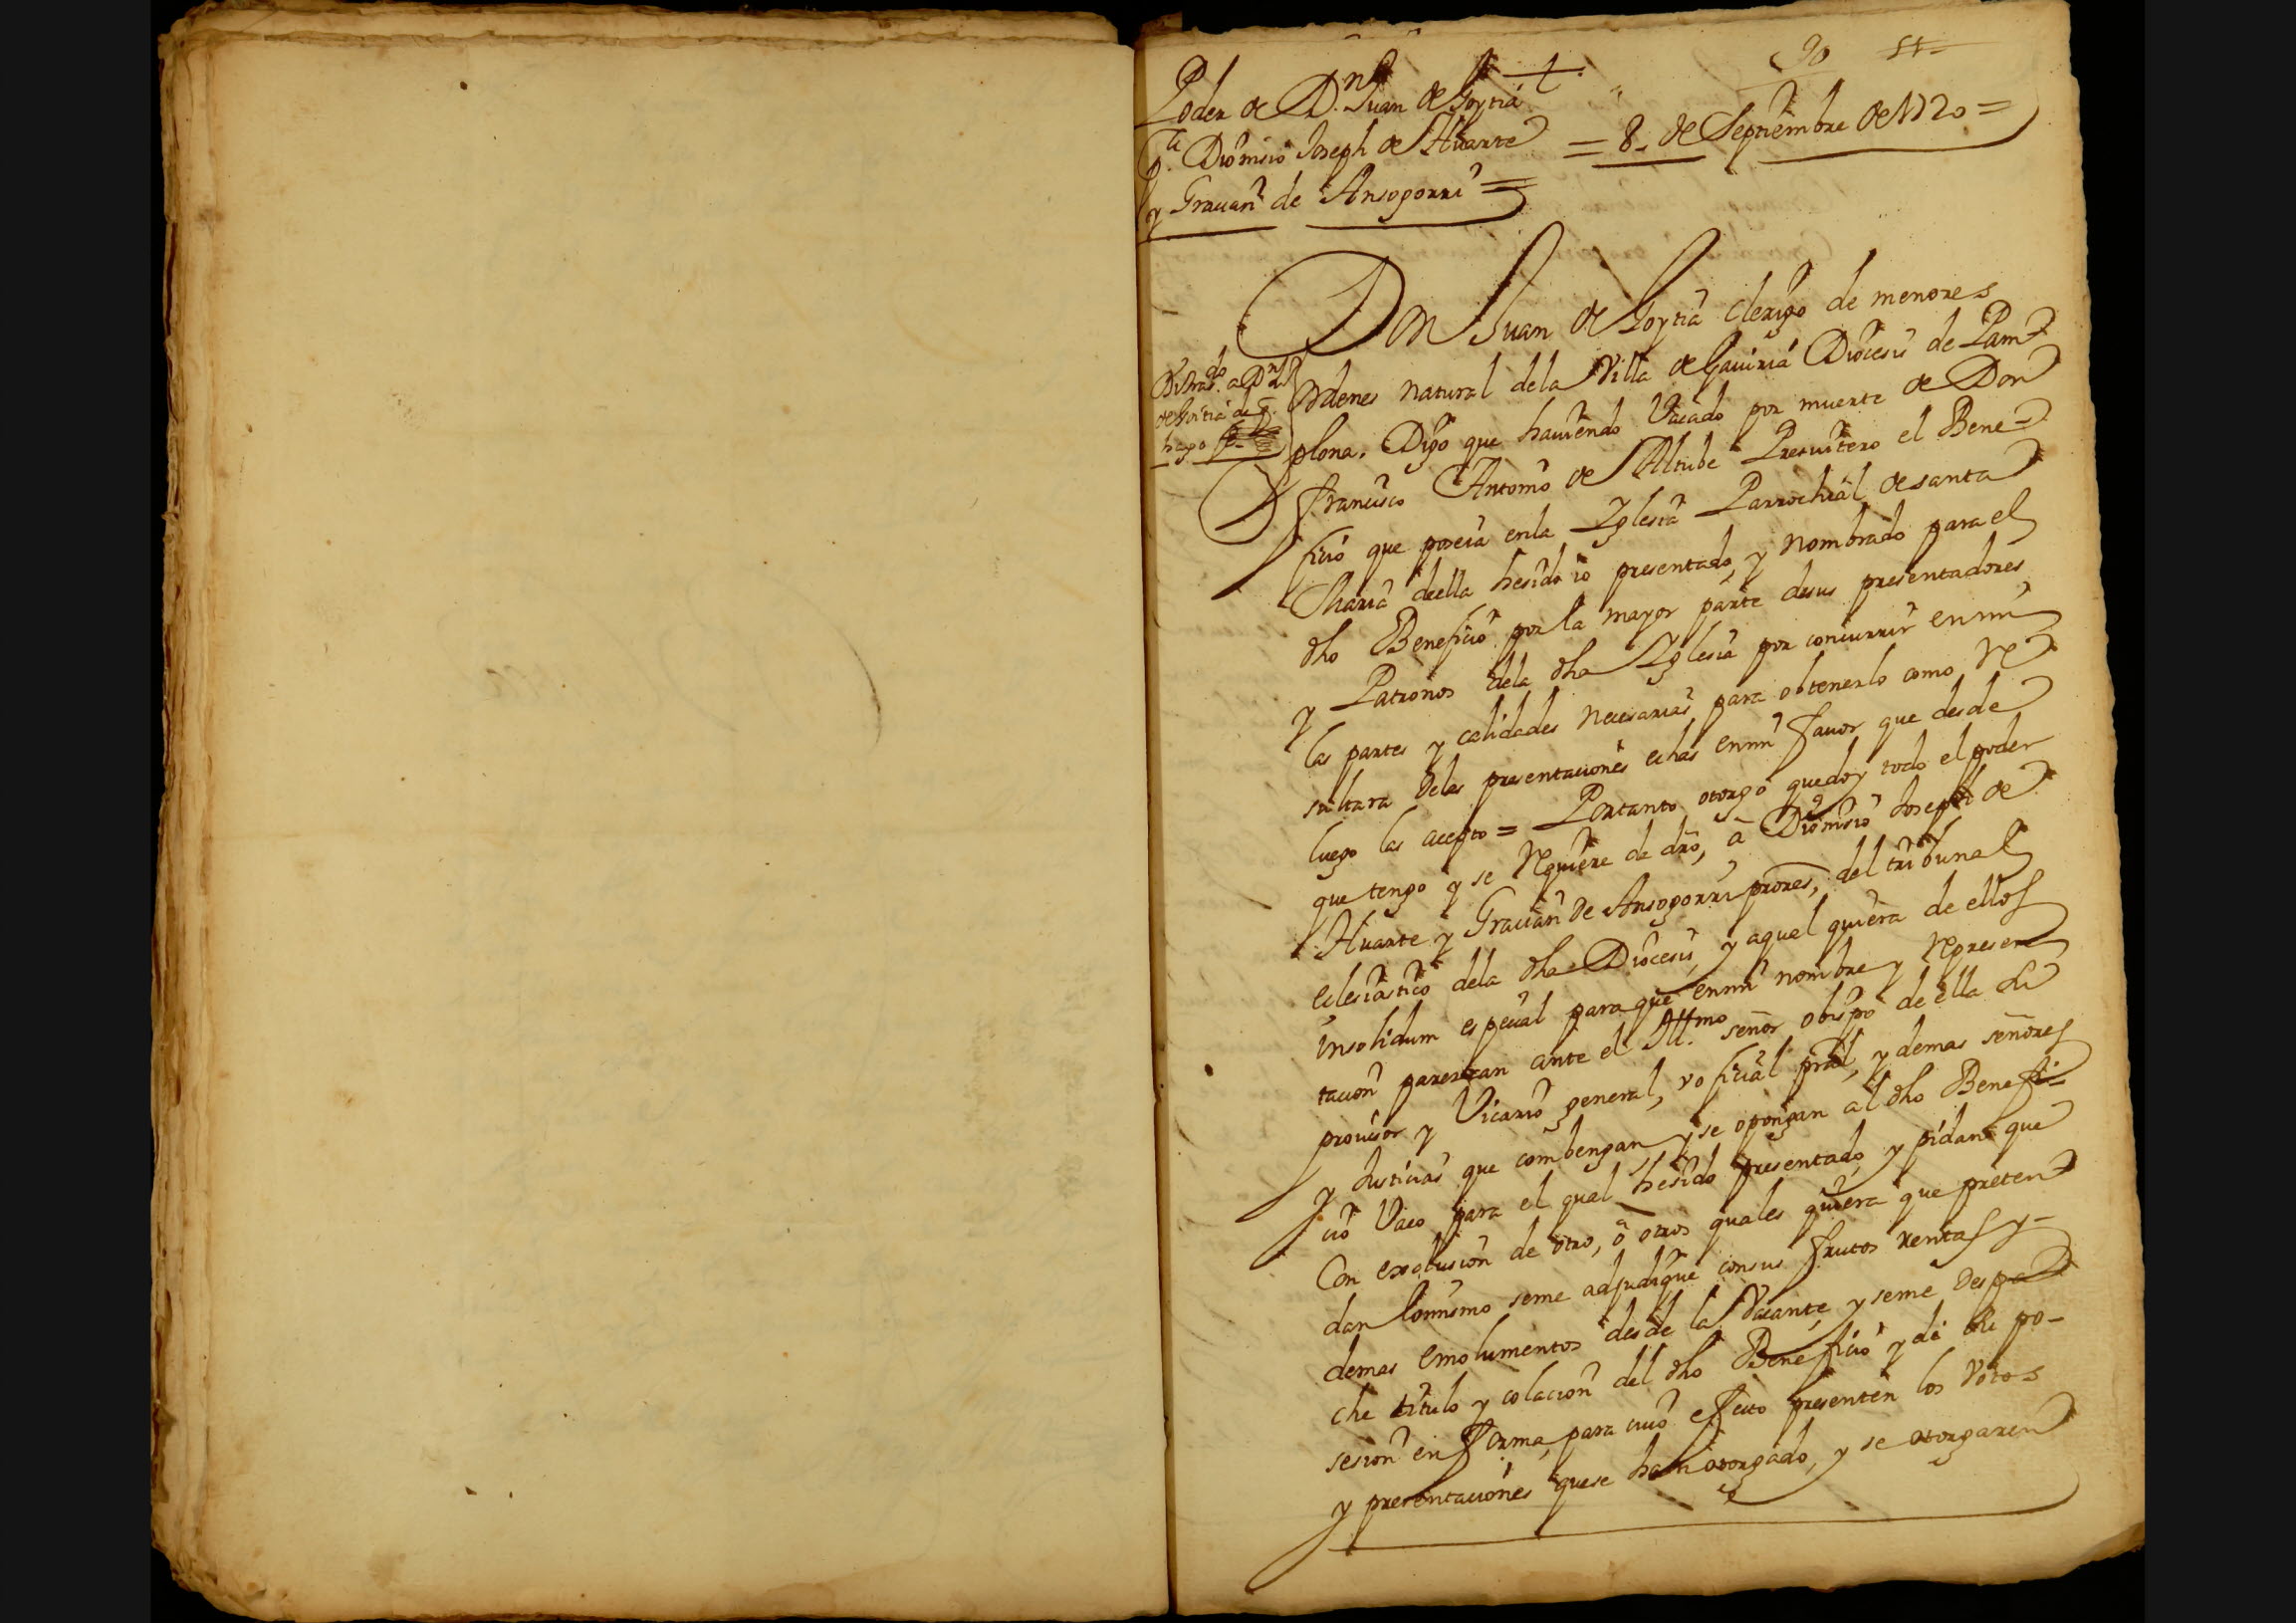 90 51
Poder de D.n Juan de Goytia
p.a Dionisio Joseph de Huarte = 8. de Septiembre de 1720 =
y Gracian de Ansogorri =
Don Juan de Goytia Clerigo de menores
ordenes natural dela Villa de Gaviria Diocesis de Pam=
plona. Digo que haviendo Vacado por muerte de Don
Francisco Antonio de Altube Presvitero el Bene=
ficio que poseia enla Yglesia Parrochial de santa
Maria deella hesido io presentado, y nombrado para el
dho Beneficio por la mayor parte desus presentadores
y Patronos dela dha Yglesia por concurrir enmi
las partes y calidades necesarias para obtenerlo como re=
sultara delas presentaciones echas enmi favor que desde
luego las acepto = Portanto otorgo quedoy todo el poder
que tengo y se requiere de dro, a Dionisio Joseph de
Huarte y Gracian de Ansogorri prores, del tribunal
eclesiastico dela dha Diocesis, y aqual quiera de ellos
insolidum especial paraque enmi nombre y represen
tacion parezcan ante el Ill.mo señor obispo de ella su
provisor y Vicario general, y oficial pral, y demas señores
y Justicias que combengan y se opongan al dho Benefi=
cio Vaco para el qual hesido presentado, y pidan que
Con exclusion de otro, ô otros quales quiera que preten=
dan lomismo seme adjudique consus frutos rentas y-
demas emolumentos desde la Vacante, y seme despa=
che titulo y colacion del dho Beneficio y de su po-
sesion en forma, para cuio efecto presenten los Votos
y presentaciones quese han otorgado, y se otorgaren
de Goitia